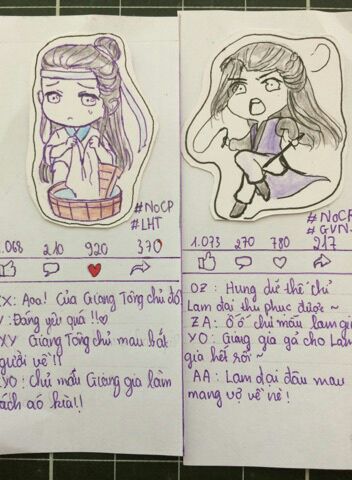 #NoCP
#LHT
1.068 210 920 370
XX: Aaa! Của Giang Tông chủ đó
Y: Đáng yêu quá!!
XY Giang Tông chủ mau bắt
người về!!
XYO: Chủ mẫu Giang gia làm
rách áo kìa!!
#NoCP
#GVN
1.073 270 780 217
OZ: Hung dữ thế chỉ
Lam đại thu phục được ~
ZA: Ồ ố chủ mẫu lam gia
YO: Giang gia gả cho Lam
gia hết rồi ~
AA: Lam đại đâu mau
mang vợ về nè!